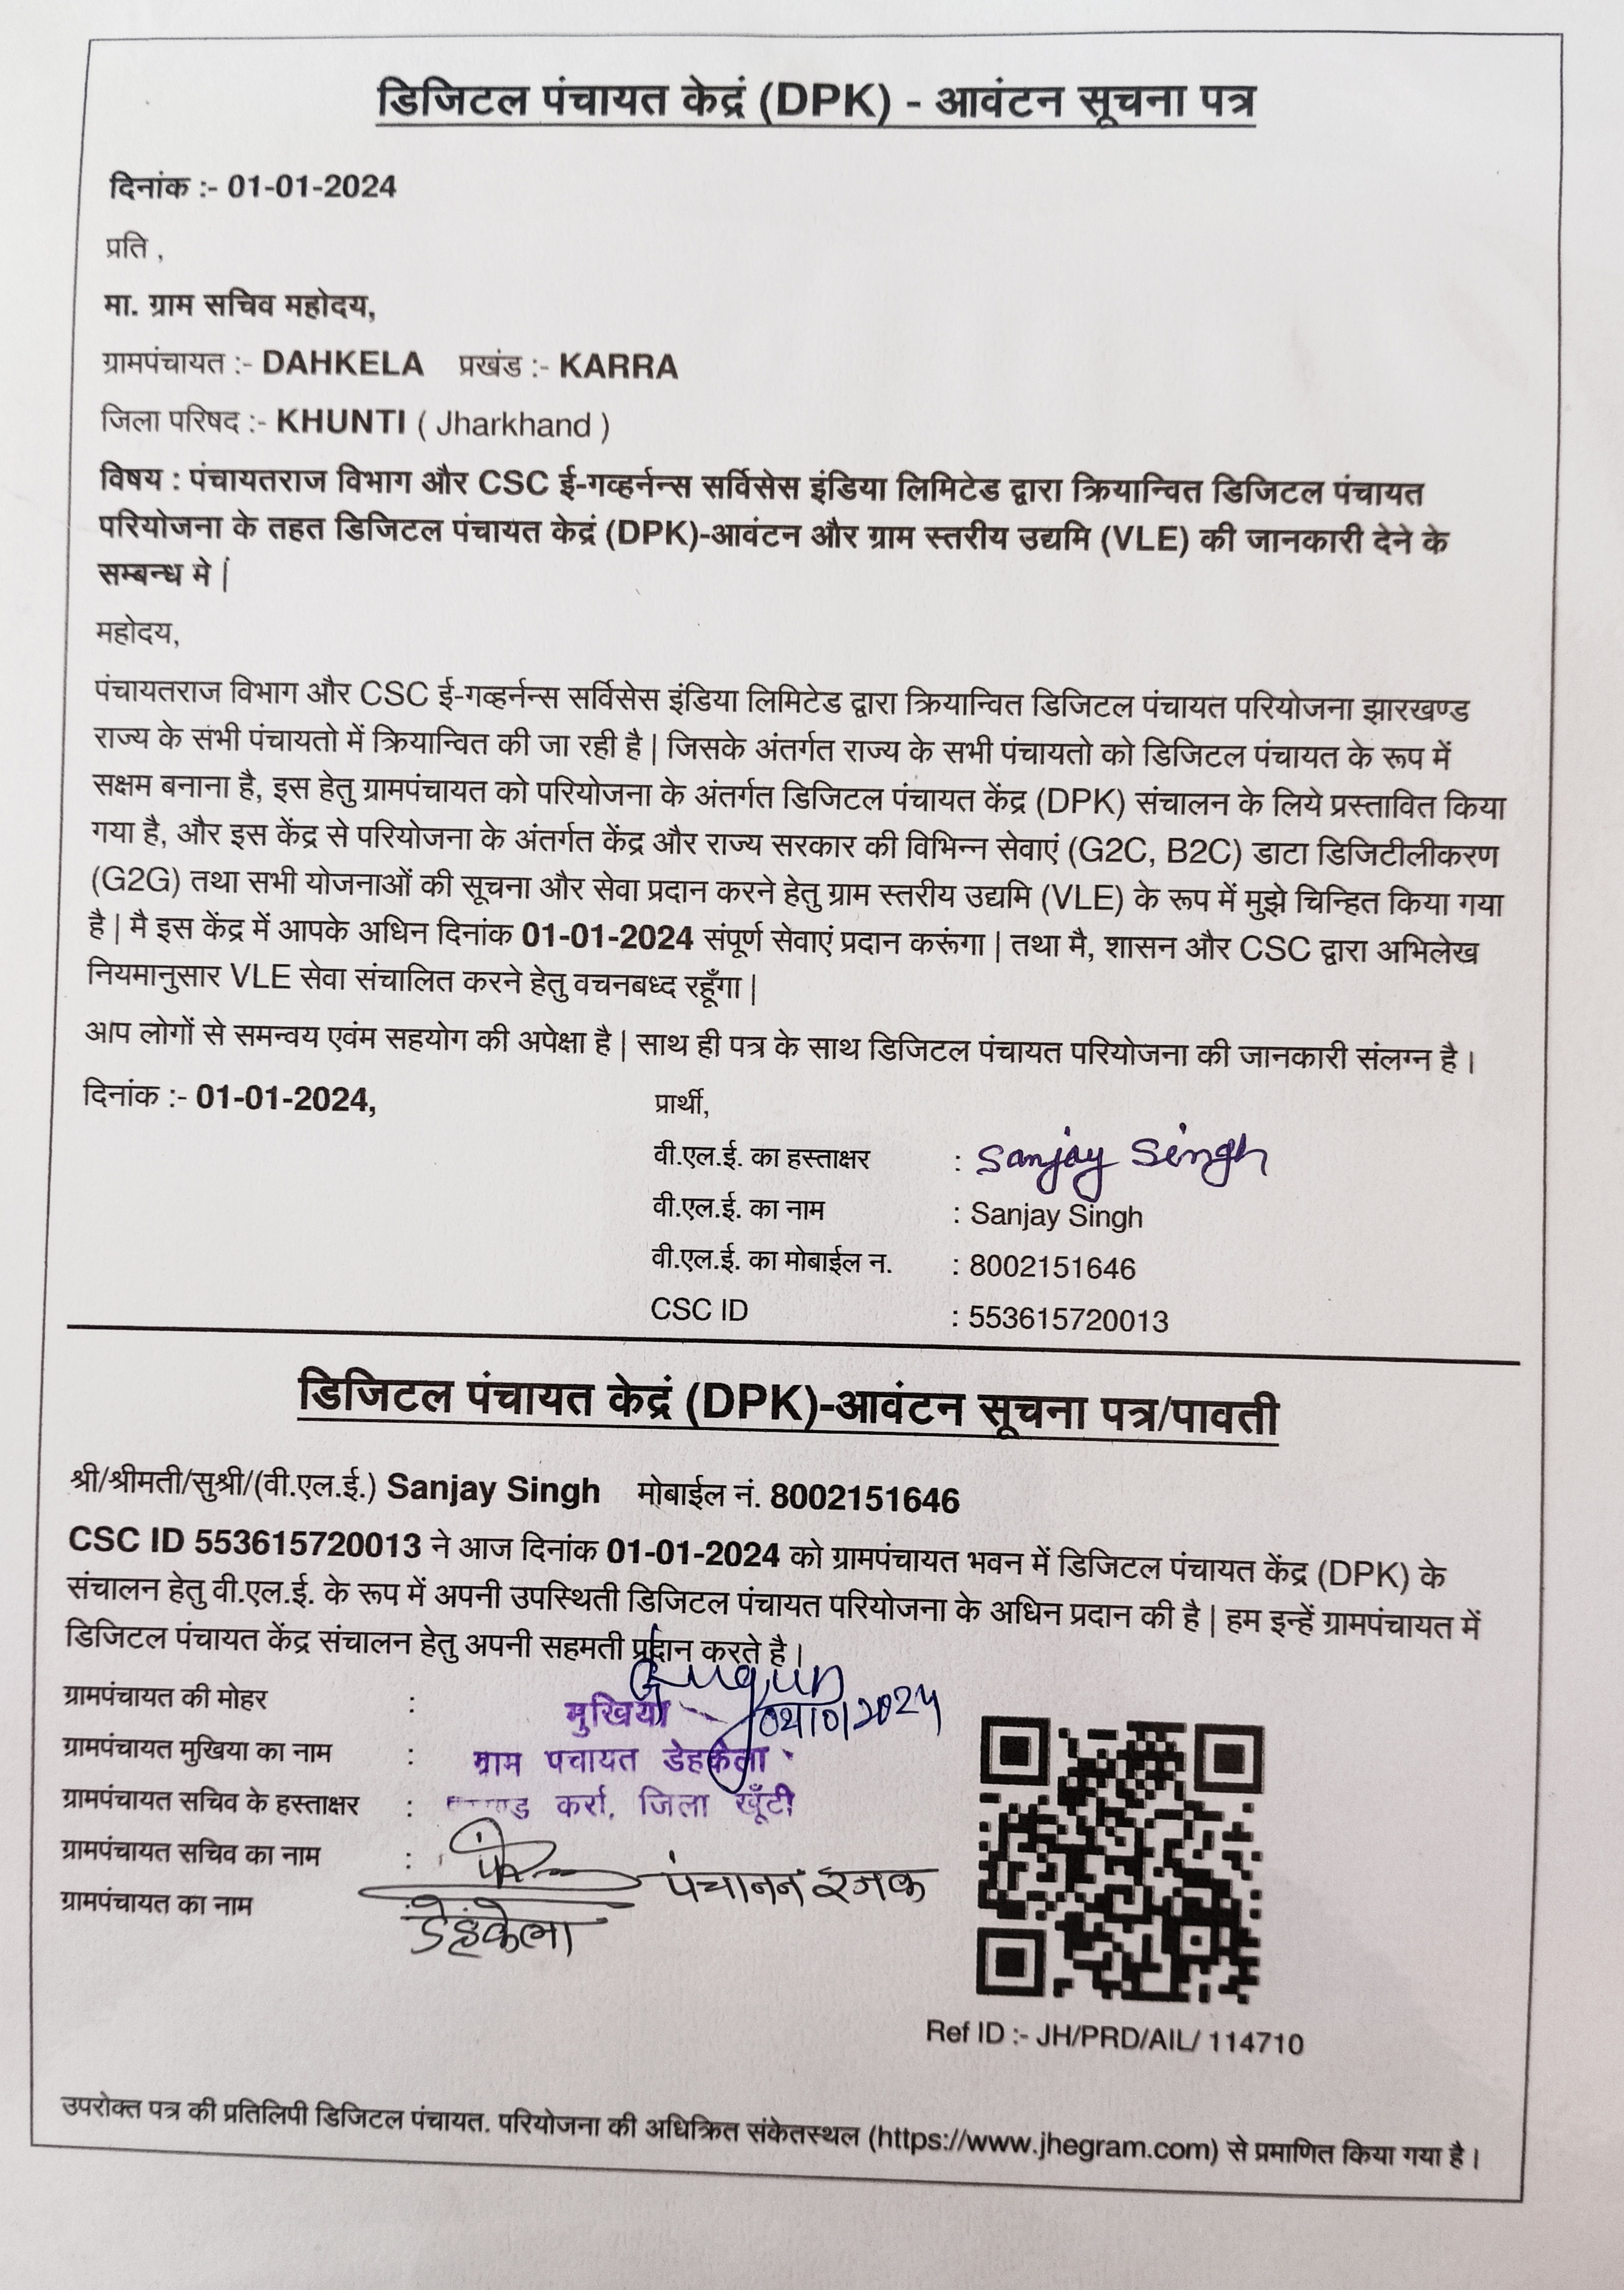 डिजिटल पंचायत केद्रं (DPK) - आवंटन सूचना पत्र
दिनांक :- 01-01-2024
प्रति ,
मा. ग्राम सचिव महोदय,
ग्रामपंचायत :- DAHKELA प्रखंड :- KARRA
जिला परिषद :- KHUNTI ( Jharkhand )
विषय : पंचायतराज विभाग और CSC ई-गव्हर्नन्स सर्विसेस इंडिया लिमिटेड द्वारा क्रियान्वित डिजिटल पंचायत
परियोजना के तहत डिजिटल पंचायत केद्रं (DPK)-आवंटन और ग्राम स्तरीय उद्यमि (VLE) की जानकारी देने के
सम्बन्ध मे |
महोदय,
पंचायतराज विभाग और CSC ई-गव्हर्नन्स सर्विसेस इंडिया लिमिटेड द्वारा क्रियान्वित डिजिटल पंचायत परियोजना झारखण्ड
राज्य के सभी पंचायतो में क्रियान्वित की जा रही है | जिसके अंतर्गत राज्य के सभी पंचायतो को डिजिटल पंचायत के रूप में
सक्षम बनाना है, इस हेतु ग्रामपंचायत को परियोजना के अंतर्गत डिजिटल पंचायत केंद्र (DPK) संचालन के लिये प्रस्तावित किया
गया है, और इस केंद्र से परियोजना के अंतर्गत केंद्र और राज्य सरकार की विभिन्न सेवाएं (G2C, B2C) डाटा डिजिटीलीकरण
(G2G) तथा सभी योजनाओं की सूचना और सेवा प्रदान करने हेतु ग्राम स्तरीय उद्यमि (VLE) के रूप में मुझे चिन्हित किया गया
है | मै इस केंद्र में आपके अधिन दिनांक 01-01-2024 संपूर्ण सेवाएं प्रदान करूंगा | तथा मै, शासन और CSC द्वारा अभिलेख
नियमानुसार VLE सेवा संचालित करने हेतु वचनबध्द रहूँगा |
आप लोगों से समन्वय एवंम सहयोग की अपेक्षा है | साथ ही पत्र के साथ डिजिटल पंचायत परियोजना की जानकारी संलग्न है ।
दिनांक :- 01-01-2024, प्रार्थी,
वी.एल.ई. का हस्ताक्षर : Sanjay Singh
वी.एल.ई. का नाम : Sanjay Singh
वी.एल.ई. का मोबाईल न. : 8002151646
CSC ID : 553615720013
डिजिटल पंचायत केद्रं (DPK)-आवंटन सूचना पत्र/पावती
श्री/श्रीमती/सुश्री/(वी.एल.ई.) Sanjay Singh मोबाईल नं. 8002151646
CSC ID 553615720013 ने आज दिनांक 01-01-2024 को ग्रामपंचायत भवन में डिजिटल पंचायत केंद्र (DPK) के
संचालन हेतु वी.एल.ई. के रूप में अपनी उपस्थिती डिजिटल पंचायत परियोजना के अधिन प्रदान की है | हम इन्हें ग्रामपंचायत में
डिजिटल पंचायत केंद्र संचालन हेतु अपनी सहमती प्रदान करते है ।
ग्रामपंचायत की मोहर : मुखिया
ग्रामपंचायत मुखिया का नाम : ग्राम पचायत डेहकेला
ग्रामपंचायत सचिव के हस्ताक्षर : कर्रा, जिला खूँटी
ग्रामपंचायत सचिव का नाम : पंचानन रजक
ग्रामपंचायत का नाम डेहकेला
Ref ID :- JH/PRD/AIL/ 114710
उपरोक्त पत्र की प्रतिलिपी डिजिटल पंचायत. परियोजना की अधिक्रित संकेतस्थल (https://www.jhegram.com) से प्रमाणित किया गया है ।